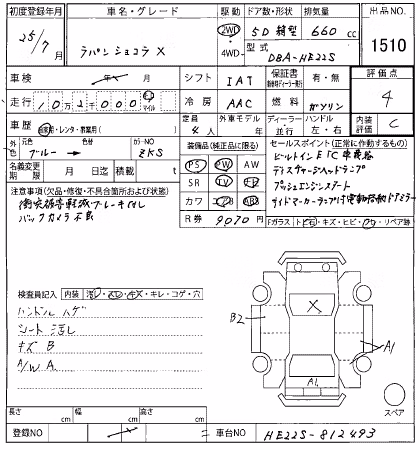 初度登録年月 車名・グレード 駆動 ドア数・形状 排気量 出品NO.
25/7月 ラパンショコラ X 2WD 4WD 5D 箱型 660cc 1510
型式 DBA-HE22S
車検 年 月 シフト IAT 保証書 有・無 評価点
走行 102000 キロ マイル 冷房 AAC 燃料 ガソリン 4
車歴 自家用・レンタ・教習用( ) 定員 4人 外車モデル ディーラー・並行 ハンドル 左・右 内装 C
外色 元色 ブルー → 色替 カラーNO ZKS
装備品(純正品に限る) セールスポイント(正常に作動するもの)
PS PW AW ビルトインETC車載器
名義変更期限 月 日迄 積載 t SR TV ナビ ディスチャージヘッドランプ
注意事項(欠品・修復・不具合箇所および状態) カワ エアB ABS プッシュエンジンスタート
衝突被害軽減ブレーキ付し サイドマーカーランプ付電動格納ドアミラー
バックカメラ不良 R券 9070円 Fガラス トビ石・キズ・ヒビ・ワレ・リペア跡
検査員記入 内装 汚レ・スレ・キズ・キレ・コゲ・穴
ハンドル ハゲ
シート 汚し
キズ B
A/W A
X
B2
A1
A1
スペア
長さ cm 幅 cm 高さ cm
登録NO 車台NO HE22S-812493